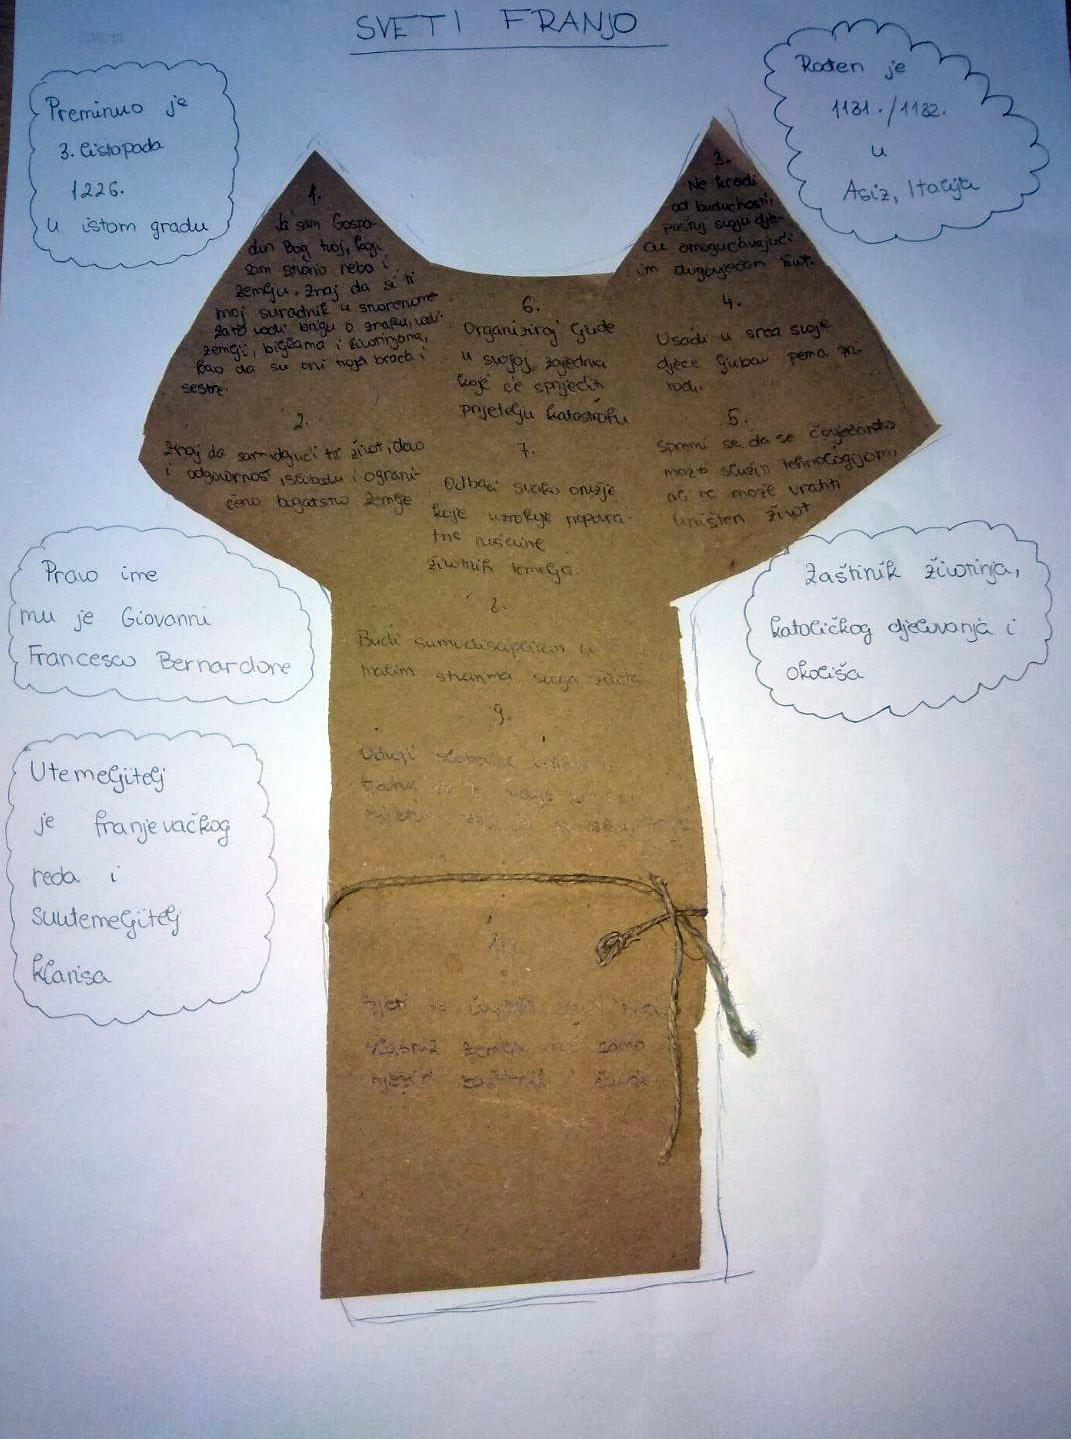 SVETI FRANJO
Preminuo je
3. listopada
1226.
u istom gradu
Rođen je
1181./1182.
u
Asiz, Italija
1.
Ja sam Gospo-
din Bog tvoj, koji
sam stvorio nebo i
zemlju. Znaj da si ti
moj suradnik u stvorenome
zato vodi brigu o zraku, vodi
zemlji, biljkama i životinjama,
kao da su oni tvoja braća i
sestre.
2.
Znaj da sam dajući ti život, dao
i odgovornost, slobodu i ograni-
čeno bogatstvo zemlje
3.
Ne kradi
od budućnosti,
poštuj svoju dje-
cu omogućavajući
im dugovječan život.
4.
Usadi u srca svoje
djece ljubav prema pri-
rodi.
5.
Spremi se da se čovječanstvo
može služiti tehnologijom,
ali ne može vratiti
uništen život
6.
Organiziraj ljude
u svojoj zajednici
koje će spriječiti
prijetelju katastrofu
7.
Odbaci svako oružje
koje uzrokuje nepovra-
tne
životnih temelja.
8.
Budi samodiscipliniran u
malim stvarima svoga života
9.
Udijeli
10.
Sjeti se čovječe
vlasnik zemlje već samo
njezin zaštitnik i čuvar
Pravo ime
mu je Giovanni
Francesco Bernardone
Zaštinik životinja,
katoličkog djelovanja i
okoliša
Utemeljitelj
je franjevačkog
reda i
suutemeljitelj
klarisa